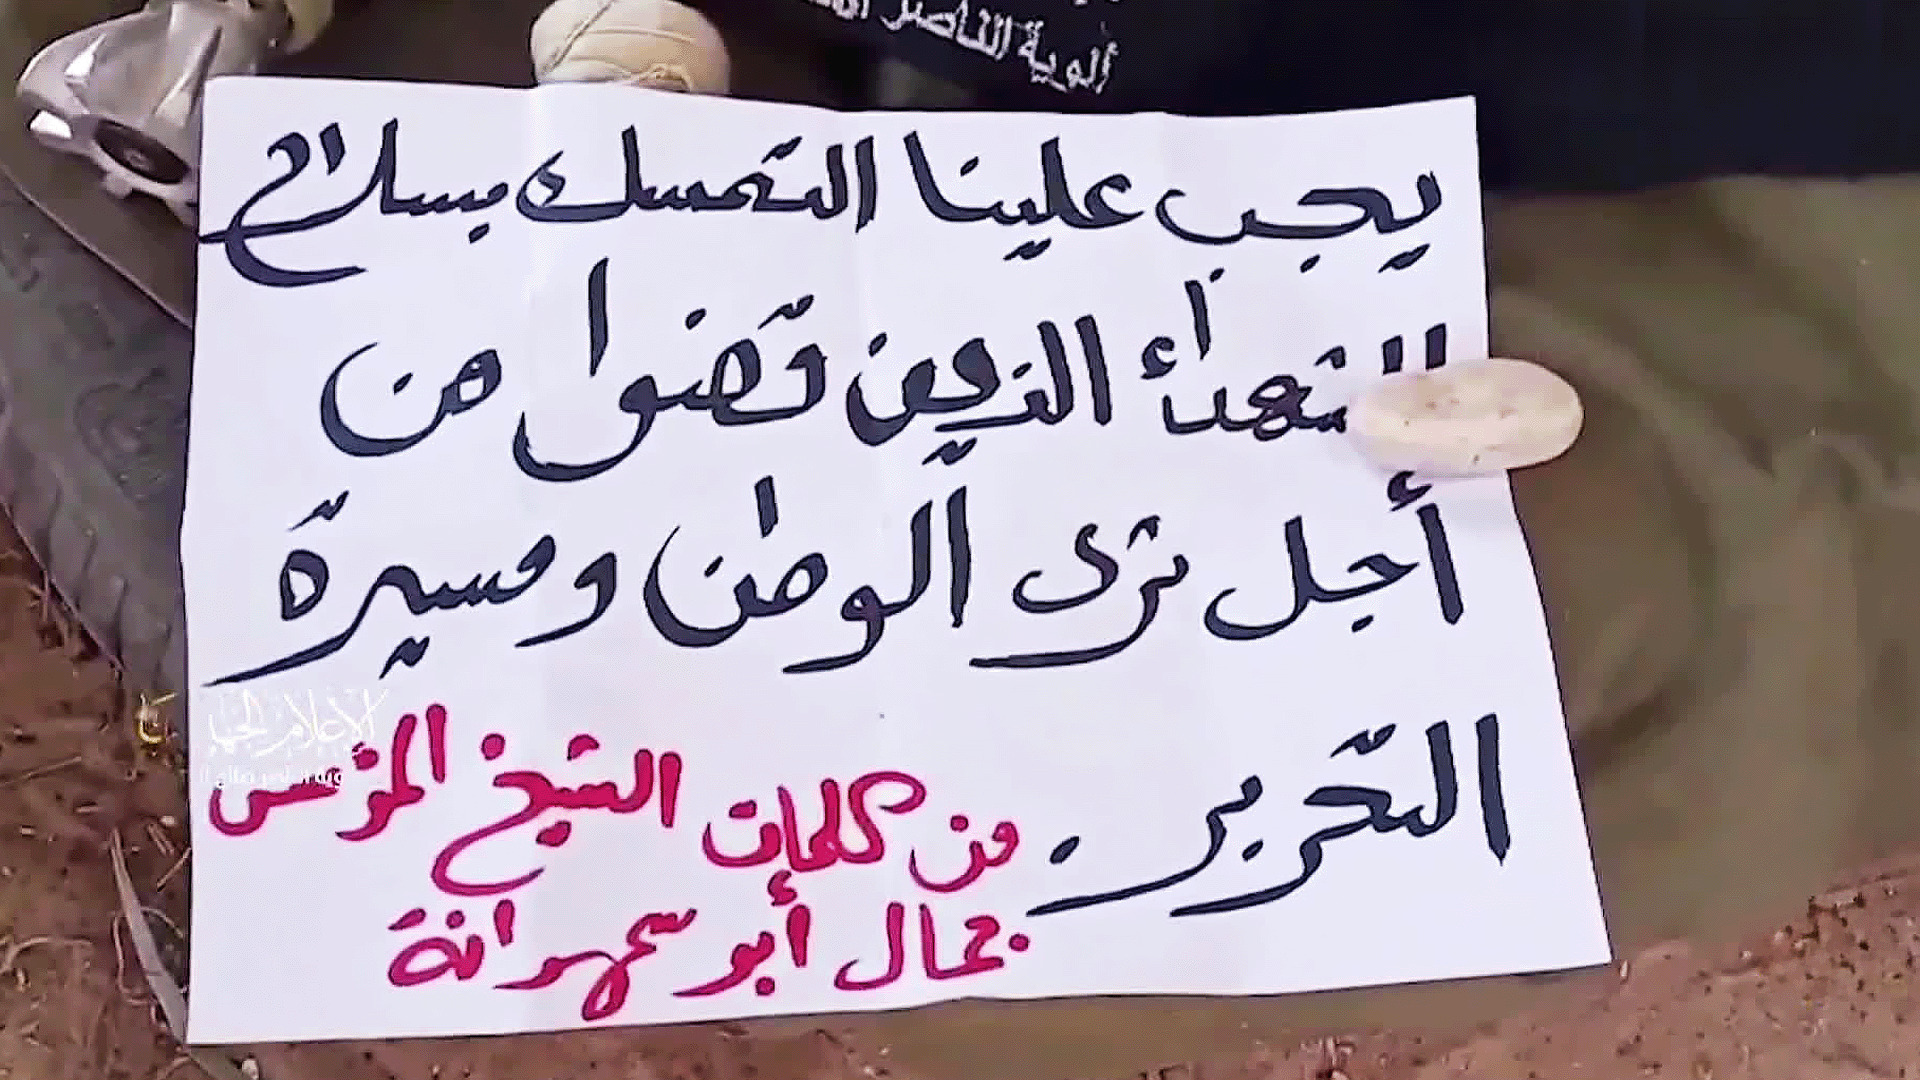 ألوية الناصر
يجب علينا التمسك بسلاح
الشهداء الذين قضوا من
أجل ثرى الوطن ومسيرة
التحرير .
من كلمات الشيخ المؤسس
جمال أبو سمهدانة
الإعلام الحربي